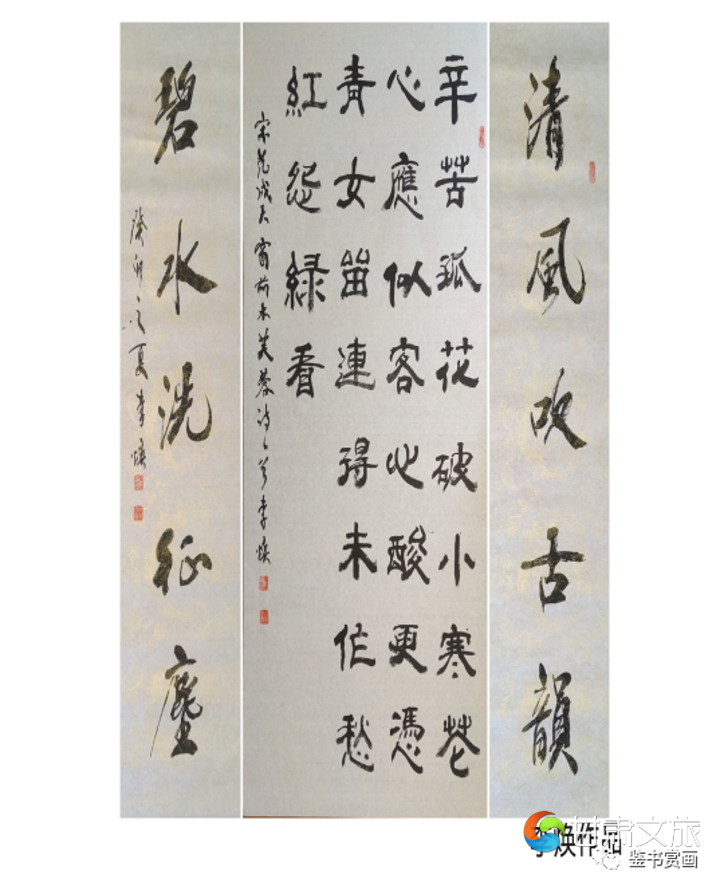 清風吹古韻
辛苦孤花破小寒花
心應似客心酸更憑
青女留連得未作愁
紅怨緑看
宋范成大窗前木芙蓉诗一首李焕
碧水洗征塵
癸卯之夏李焕
李焕作品
甘肃文旅
鉴书赏画